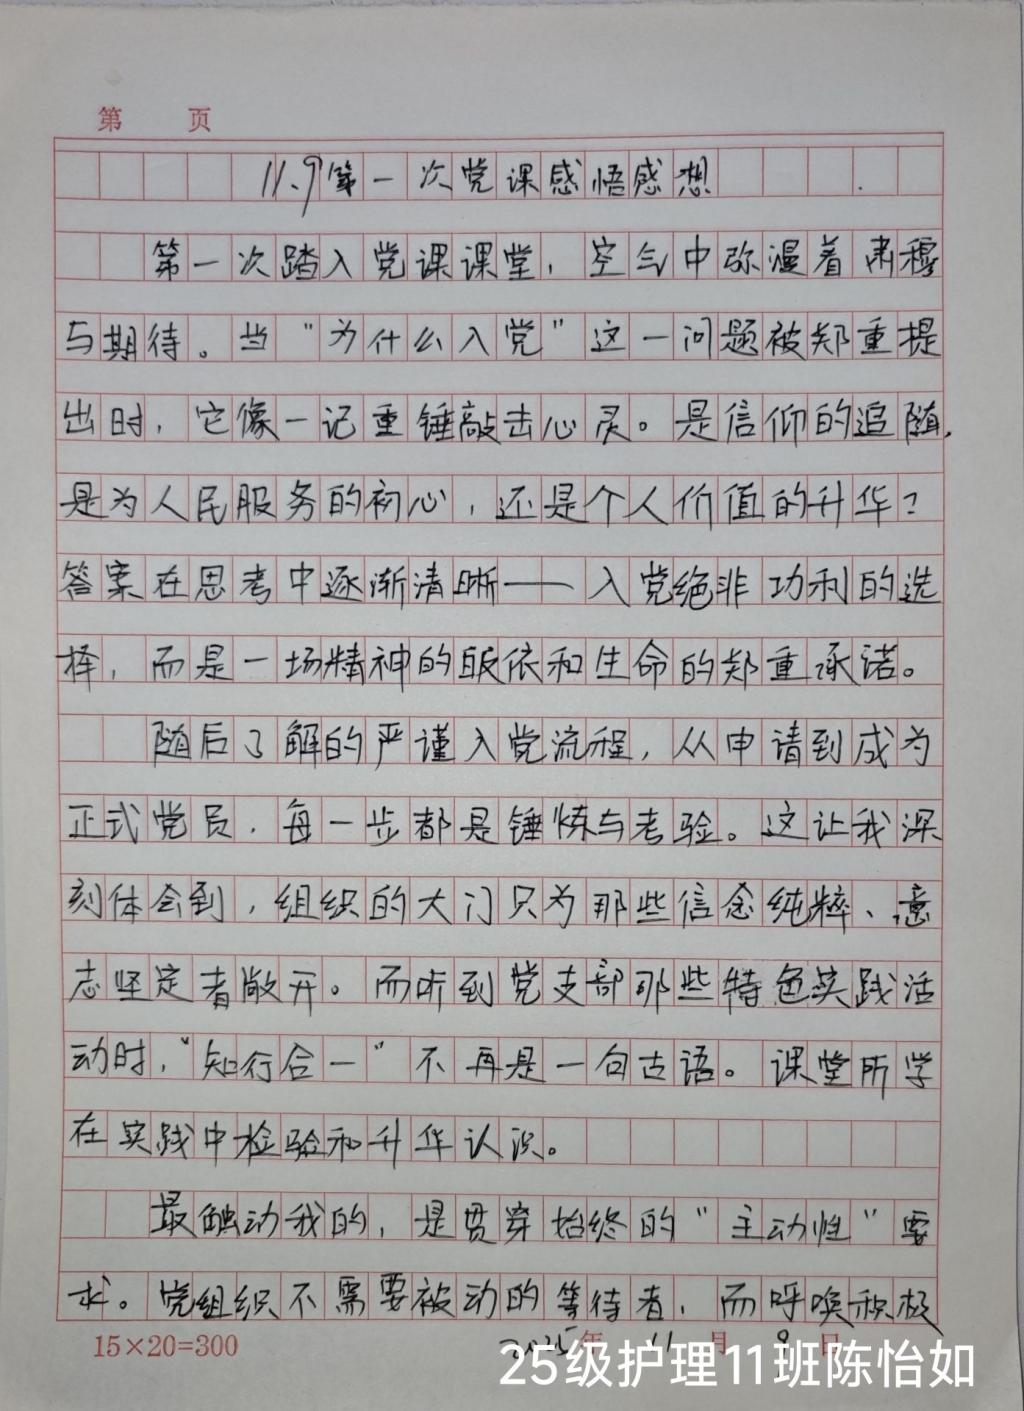 第 页
11.9第一次党课感悟感想
第一次踏入党课课堂，空气中弥漫着肃穆
与期待。当"为什么入党"这一问题被郑重提
出时，它像一记重锤敲击心灵。是信仰的追随，
是为人民服务的初心，还是个人价值的升华？
答案在思考中逐渐清晰——入党绝非功利的选
择，而是一场精神的皈依和生命的郑重承诺。
随后了解的严谨入党流程，从申请到成为
正式党员，每一步都是锤炼与考验。这让我深
刻体会到，组织的大门只为那些信念纯粹、意
志坚定者敞开。而听到党支部那些特色实践活
动时，"知行合一"不再是一句古语。课堂所学
在实践中检验和升华认识。
最触动我的，是贯穿始终的"主动性"要
求。党组织不需要被动的等待者，而呼唤积极
15×20=300 2025年 11月 9日
25级护理11班陈怡如